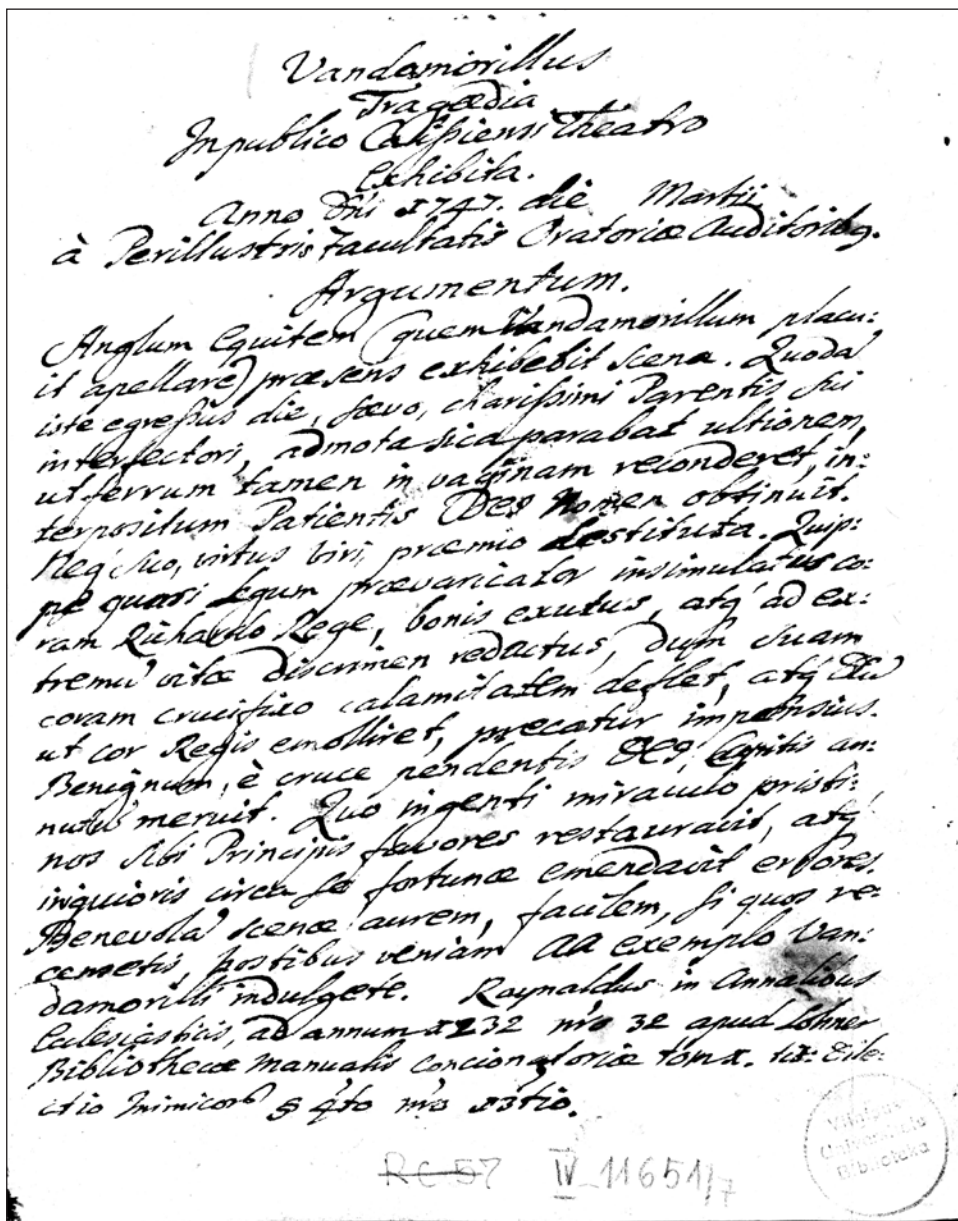 Vandamorillus
Tragœdia
In publico Calissiensi Theatro
Exhibita.
Anno Dñi 1747. die Martii
à Perillustris Facultatis Oratoriæ Auditorib9.
Argumentum.
Anglum Equitem (quem Vandamorillum placu:
it apellare) præsens exhibebit scena. Quodã
iste egressus die, sævo, charissimi Parentis sui
interfectori, admota sica parabat ultionem,
ut ferrum tamen in vaginam reconderet, in:
terpositum Patientis DEI Nomen obtinuit.
Neq́ suo, virtus viri, præmio destituta. Quip:
pe quasi legum prævaricator insimulatus co:
ram Richardo Rege, bonis exutus, atq́ ad ex:
tremũ vitæ discrimen redactus, dum suam
coram crucifixo calamitatem deflet, atq́ Deũ
ut cor Regis emolliret, precatur impensius.
Benignum, è cruce pendentis DEI, Capitis an:
nutũ meruit. Quo ingenti miraculo pristi:
nos sibi Principis favores restauravit, atq́
iniquioris circa se fortunæ emendavit errores.
Benevolã scenæ aurem, facilem, si quos re:
censetis, hostibus veniam ad exemplo Van:
damorilli indulgete. Raynaldus in Annalibus
Eclesiasticis, ad annum 1232 nro 32 apud Lohner
Bibliothecæ manualis concionatoriæ tom 1. tit: Dile:
ctio Inimicorũ § 4to nro 13tio.
RC 57 IV_11651/7
Vilniaus
Universiteto
Biblioteka